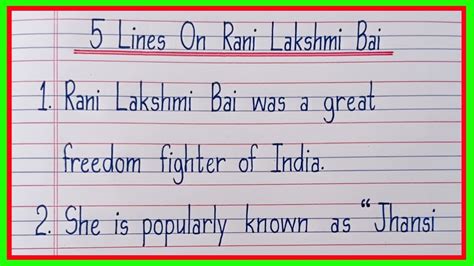 5 Lines On Rani Lakshmi Bai
1. Rani Lakshmi Bai was a great
freedom fighter of India.
2. She is popularly known as "Jhansi